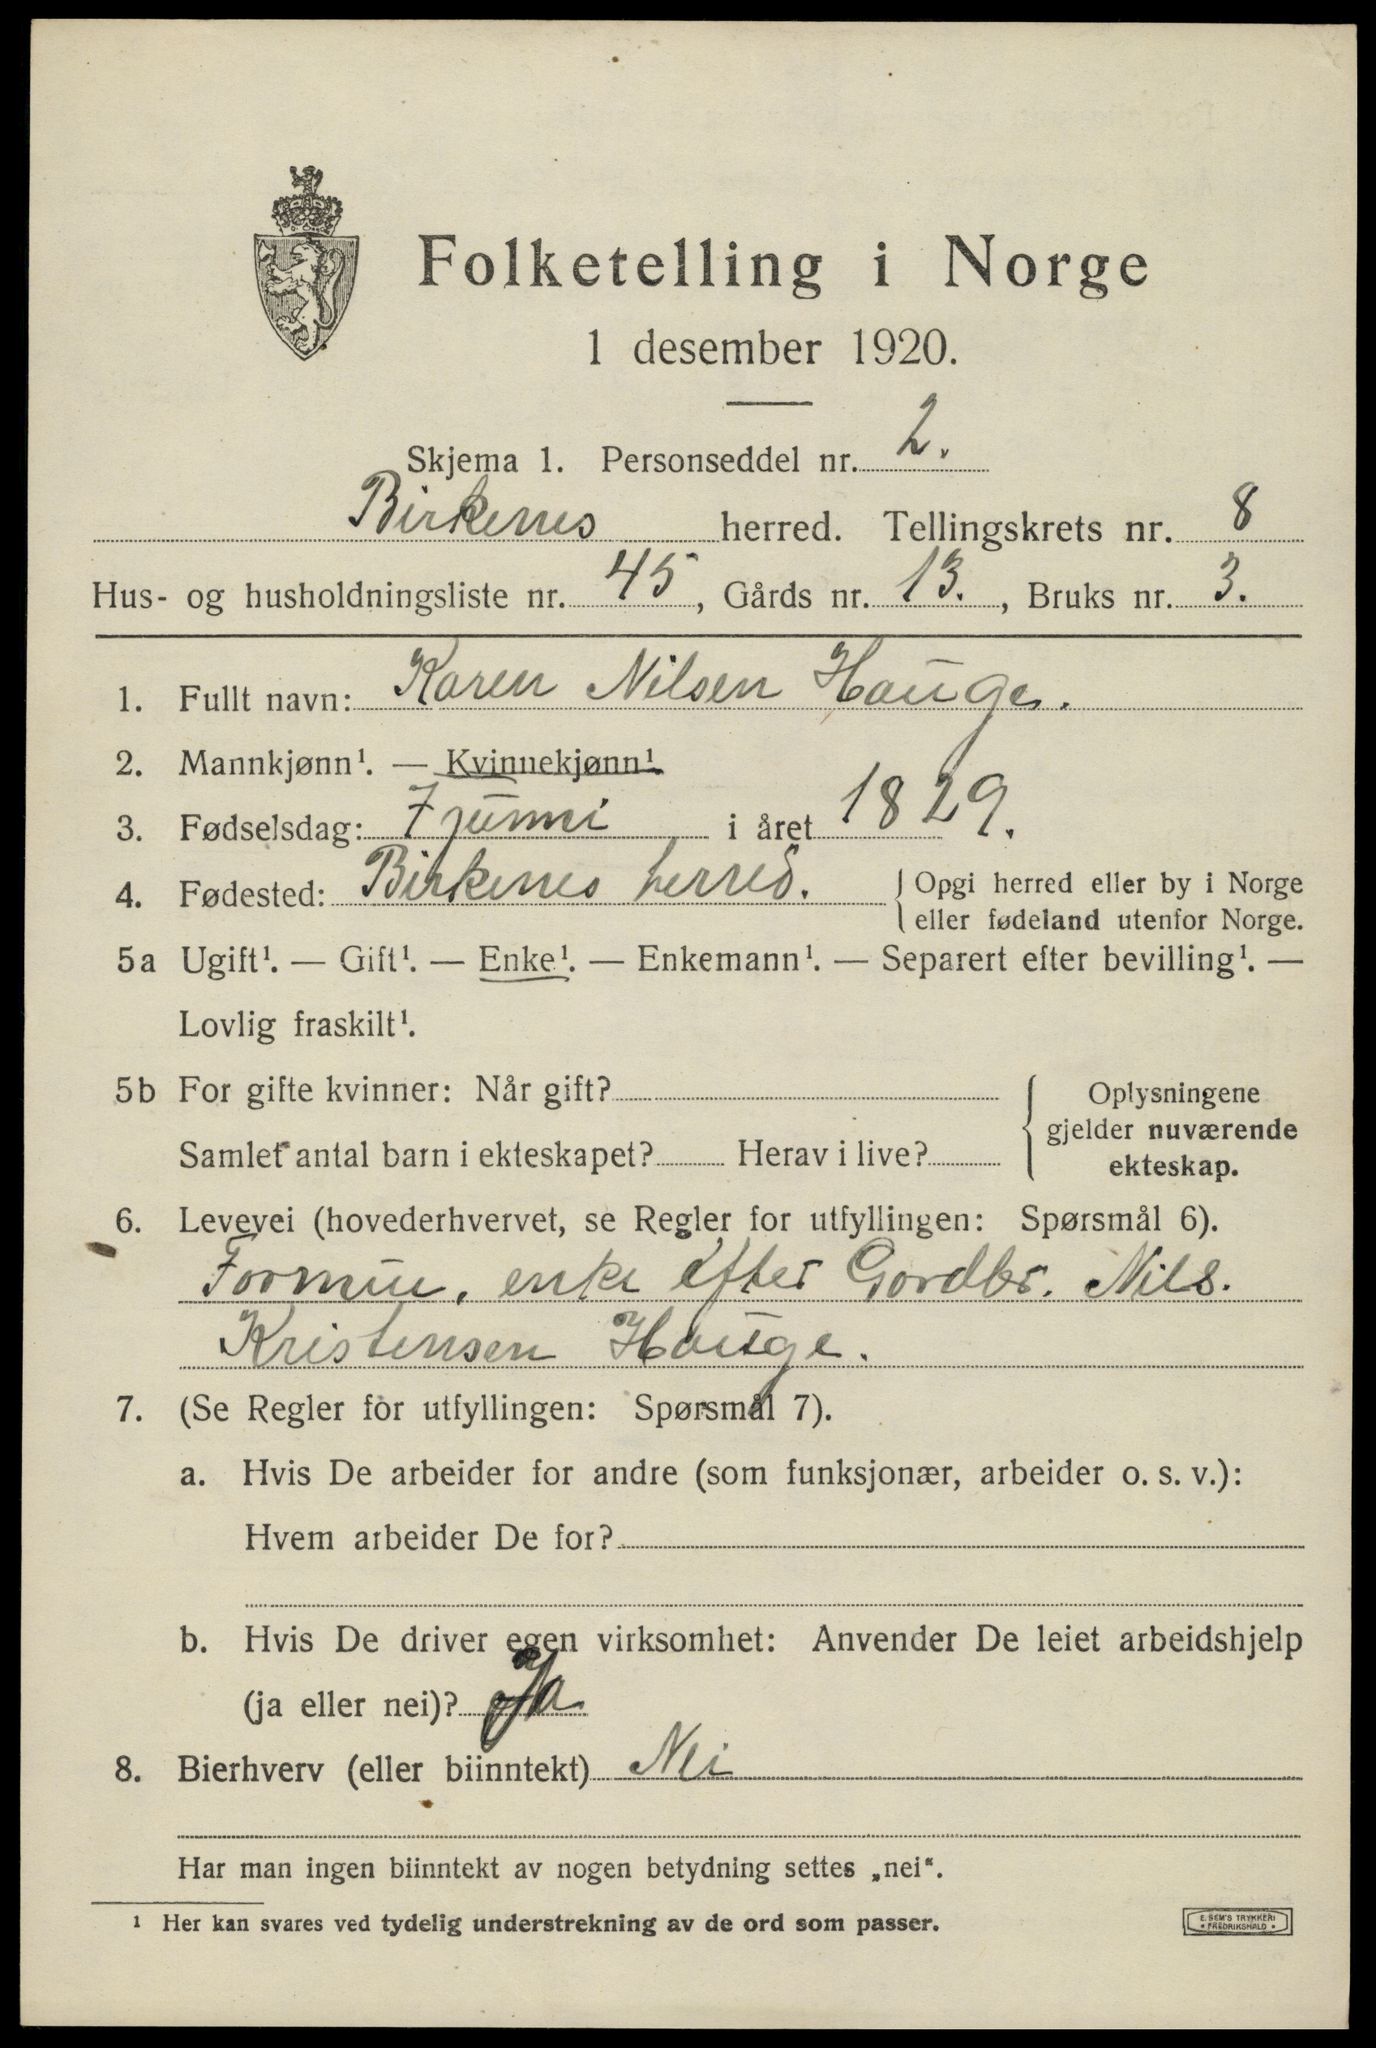 Folketelling i Norge
1 desember 1920.
Skjema 1. Personseddel nr. 2.
Birkenes herred. Tellingskrets nr. 8
Hus- og husholdningsliste nr. 45, Gårds nr. 13., Bruks nr. 3.
1. Fullt navn: Karen Nilsen Hauge.
2. Mannkjønn¹. — Kvinnekjønn¹.
3. Fødselsdag: 7 junni i året 1829.
4. Fødested: Birkenes herred. Opgi herred eller by i Norge
eller fødeland utenfor Norge.
5a Ugift¹. — Gift¹. — Enke¹. — Enkemann¹. — Separert efter bevilling¹. —
Lovlig fraskilt¹.
5b For gifte kvinner: Når gift? Oplysningene
gjelder nuværende
Samlet antal barn i ekteskapet? Herav i live? ekteskap.
6. Levevei (hovederhvervet, se Regler for utfyllingen: Spørsmål 6).
Formue, enke efter Gordbr. Nils.
Kristensen Hauge.
7. (Se Regler for utfyllingen: Spørsmål 7).
a. Hvis De arbeider for andre (som funksjonær, arbeider o. s. v.):
Hvem arbeider De for?
b. Hvis De driver egen virksomhet: Anvender De leiet arbeidshjelp
(ja eller nei)? Ja
8. Bierhverv (eller biinntekt) Nei
Har man ingen biinntekt av nogen betydning settes „nei“.
¹ Her kan svares ved tydelig understrekning av de ord som passer.
E. SEM'S TRYKKERI
* FREDRIKSHALD *